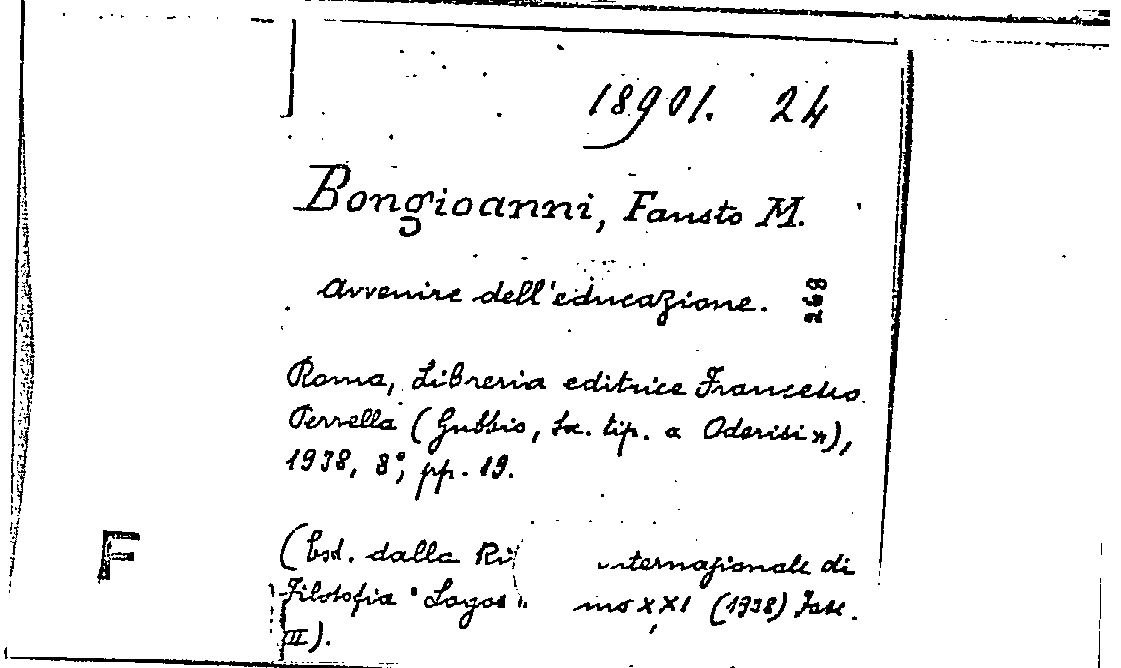 18901. 24
Bongioanni, Fausto M.
Avvenire dell'educazione.
268
Roma, Libreria editrice Francesco
Perrella (Gubbio, Sc. tip. « Oderisi »),
1938, 8°, pp. 19.
F
(Est. dalla Ri internazionale di
Filosofia "Logos" XXI (1938) Fasc.
III).